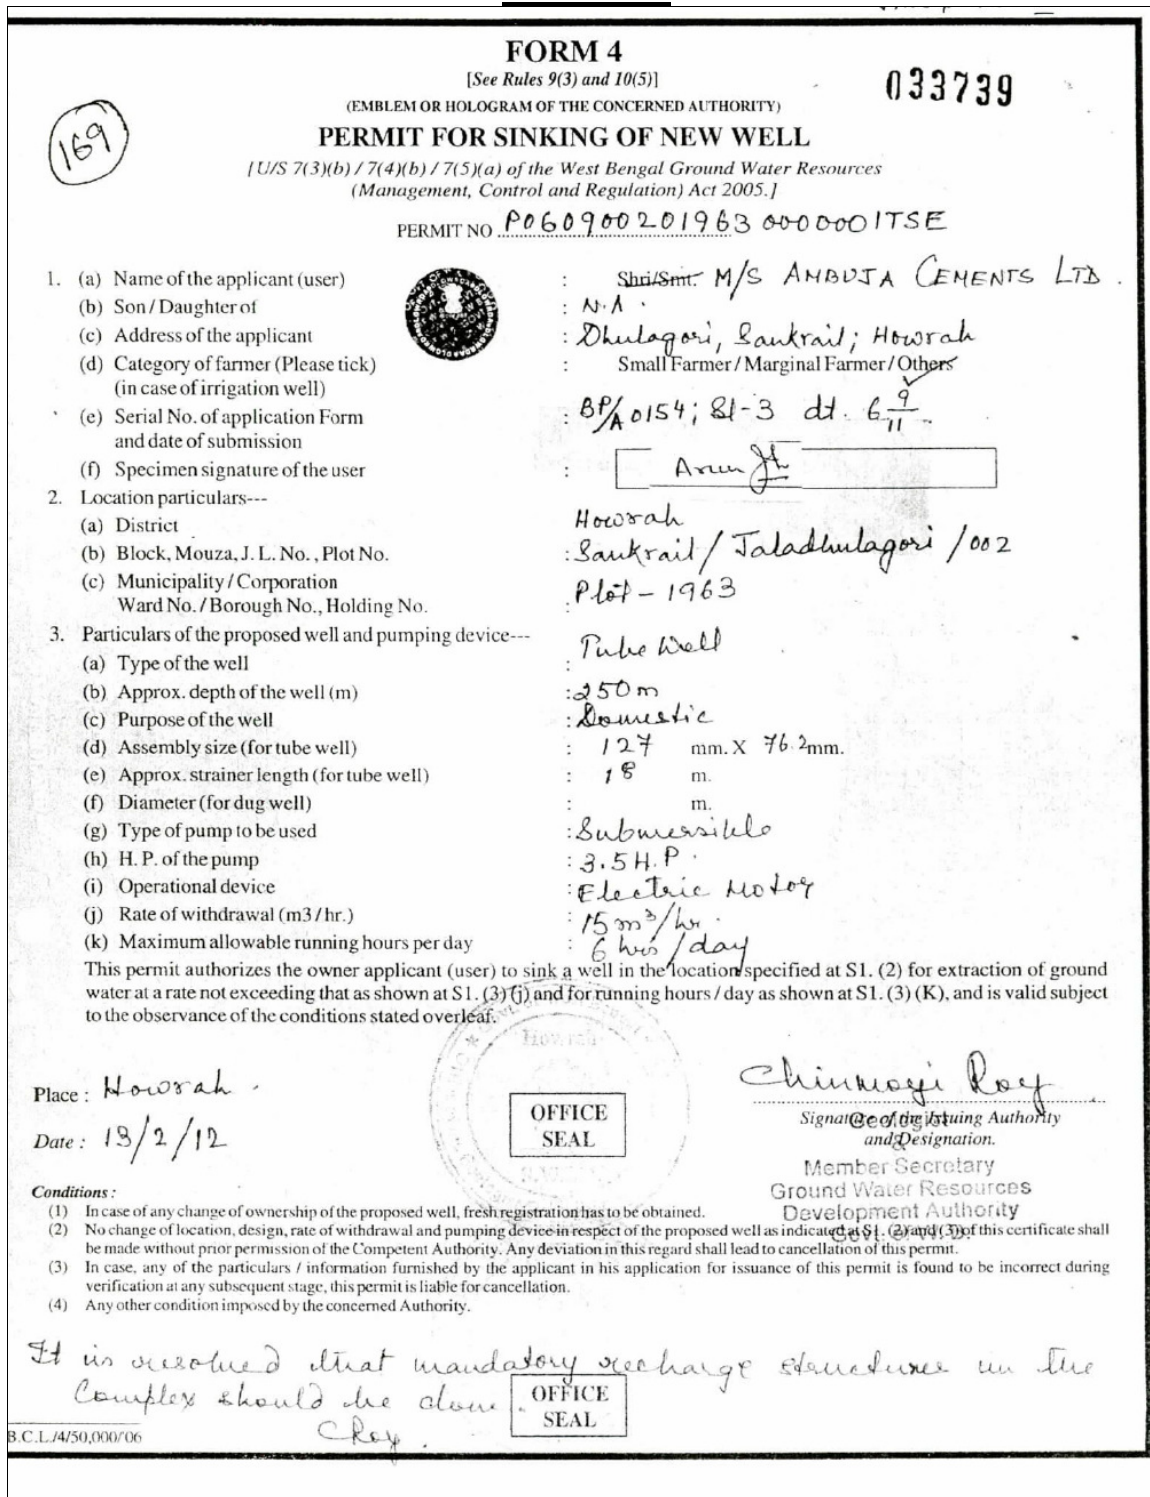 FORM 4
[See Rules 9(3) and 10(5)]
033739
(EMBLEM OR HOLOGRAM OF THE CONCERNED AUTHORITY)
169
PERMIT FOR SINKING OF NEW WELL
[U/S 7(3)(b) / 7(4)(b) / 7(5)(a) of the West Bengal Ground Water Resources
(Management, Control and Regulation) Act 2005.]
PERMIT NO P060900201963 0000001TSE
1. (a) Name of the applicant (user) : Shri/Smt. M/S AMBUJA CEMENTS LTD.
(b) Son / Daughter of : N.A.
(c) Address of the applicant : Dhulagori, Sankrail; Howrah
(d) Category of farmer (Please tick) : Small Farmer / Marginal Farmer / Others
(in case of irrigation well)
(e) Serial No. of application Form : BP/A 0154; Sl-3 dt. 6 9/11
and date of submission
(f) Specimen signature of the user : Arun
2. Location particulars---
(a) District Howrah
(b) Block, Mouza, J. L. No., Plot No. : Sankrail / Jaladhulagori / 002
(c) Municipality / Corporation Plot - 1963
Ward No. / Borough No., Holding No. :
3. Particulars of the proposed well and pumping device---
(a) Type of the well : Tube Well
(b) Approx. depth of the well (m) : 250 m
(c) Purpose of the well : Domestic
(d) Assembly size (for tube well) : 127 mm. X 76.2 mm.
(e) Approx. strainer length (for tube well) : 18 m.
(f) Diameter (for dug well) : m.
(g) Type of pump to be used : Submersible
(h) H. P. of the pump : 3.5 H.P.
(i) Operational device : Electric Motor
(j) Rate of withdrawal (m3 / hr.) : 15 m³/hr.
(k) Maximum allowable running hours per day : 6 hrs / day
This permit authorizes the owner applicant (user) to sink a well in the location specified at S1. (2) for extraction of ground
water at a rate not exceeding that as shown at S1. (3) (j) and for running hours / day as shown at S1. (3) (K), and is valid subject
to the observance of the conditions stated overleaf.
Howrah
Place : Howrah.
Chinmoyi Roy
OFFICE
SEAL
Signature of the Issuing Authority
Geologist
and Designation.
Date : 13/2/12
Member Secretary
Ground Water Resources
Development Authority
Conditions :
(1) In case of any change of ownership of the proposed well, fresh registration has to be obtained.
(2) No change of location, design, rate of withdrawal and pumping device in respect of the proposed well as indicated at S1. (2) and (3) of this certificate shall
be made without prior permission of the Competent Authority. Any deviation in this regard shall lead to cancellation of this permit.
(3) In case, any of the particulars / information furnished by the applicant in his application for issuance of this permit is found to be incorrect during
verification at any subsequent stage, this permit is liable for cancellation.
(4) Any other condition imposed by the concerned Authority.
It is resolved that mandatory recharge structures in the
Complex should be done.
OFFICE
SEAL
CRoy.
B.C.L./4/50,000/'06